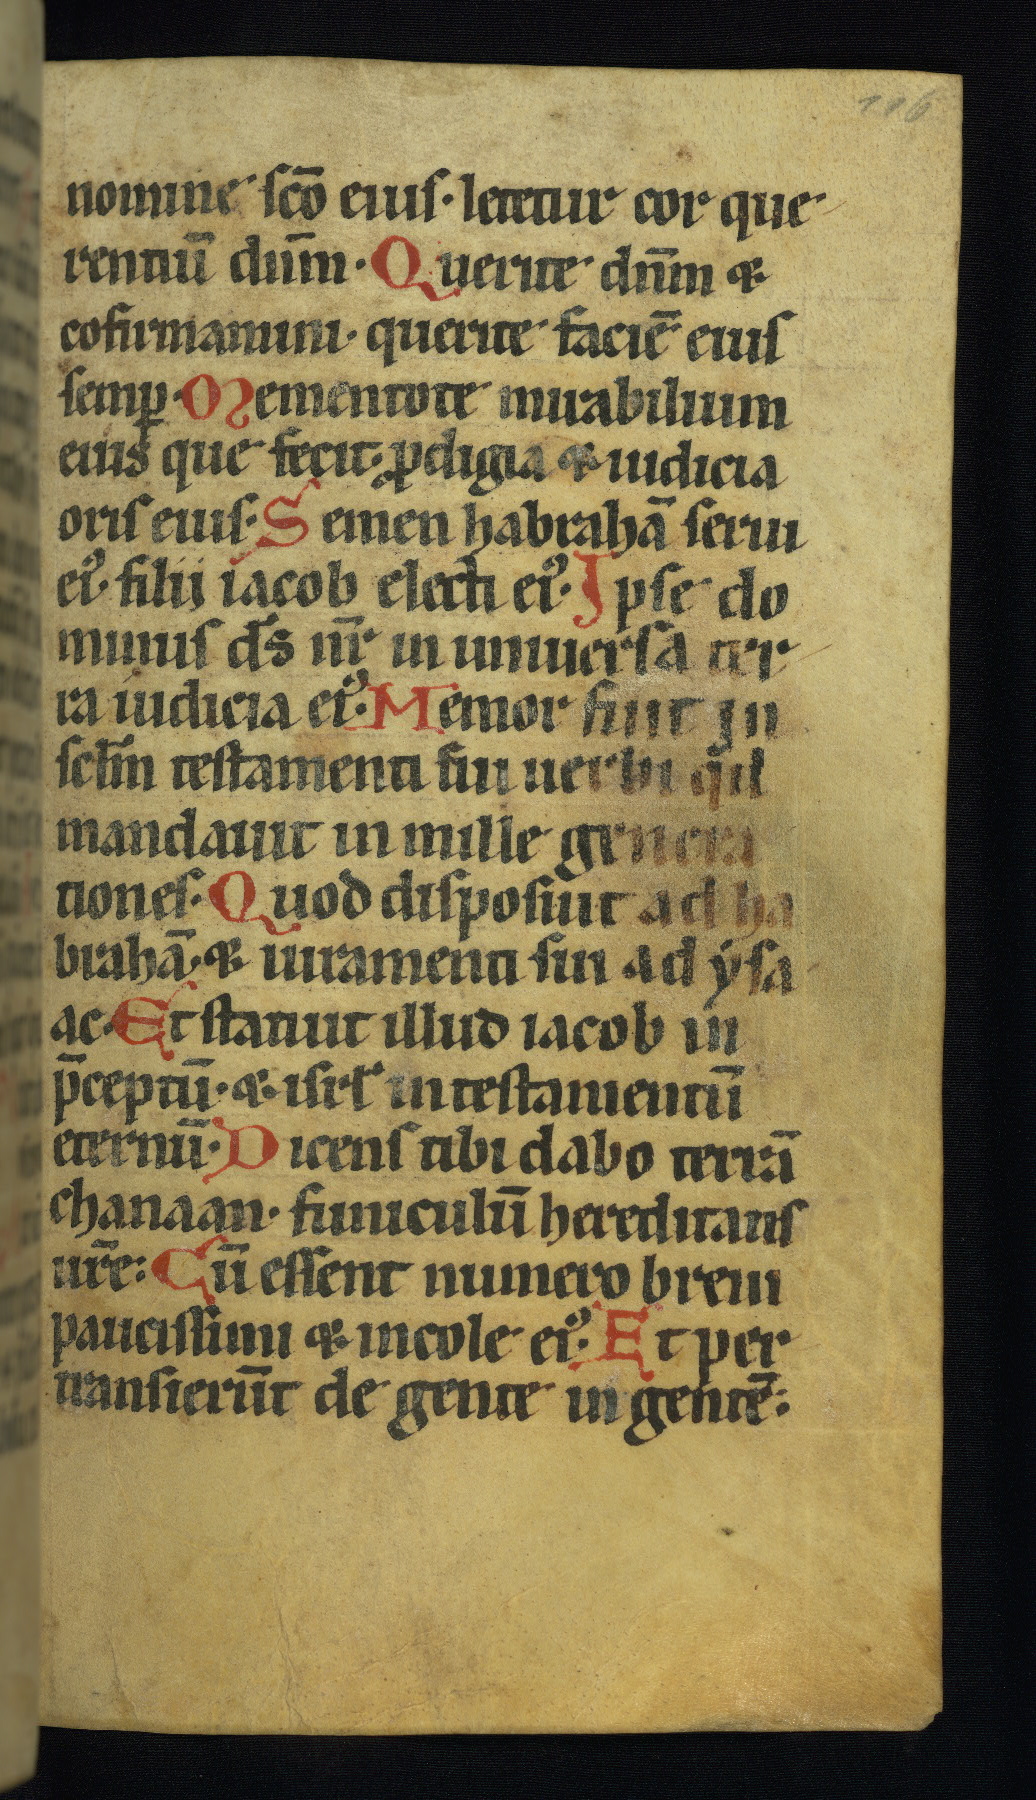 116
nomine sc̄o eius · letetur cor que
rentiū dn̄m · Querite dn̄m &
cofirmamini · querite faciē eius
semꝑ · Mementote mirabilium
eius que fecit · ꝓdigia & iudicia
oris eius · Semen habrahā serui
ei᾿ · filii iacob electi ei᾿ · Ipse do
minus ds̄ nr̄ in uniuersa ter
ra iudicia ei᾿ · Memor fuit in
sclm̄ testamenti sui uerbi qd̄
mandauit in mille genera
tiones · Quod disposuit ad ha
brahā · & iuramenti sui ad ysa
ac · Et statuit illud iacob in
p̄ceptū · & isrl̄ in testamentū
eternū · Dicens tibi dabo terrā
chanaan · funiculū hereditatis
ur̄e : Cū essent numero breui
paucissimi & incole ei᾿ · Et per
transierūt de gente in gentē :